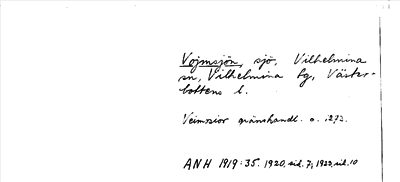 Vojmsjön, sjö, Vilhelmina
sn, Vilhelmina lg, Väster-
bottens l.
Veimssior gränshandl. o. 1273.
ANH 1919:35. 1920, sid. 7; 1922, sid. 10